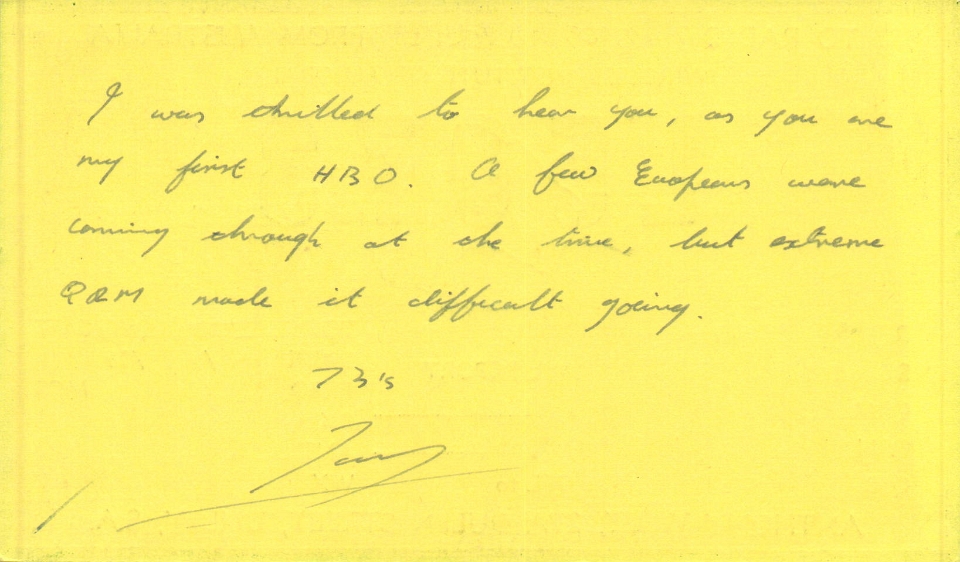 I was thrilled to hear you, as you are
my first HBO. A few Europeans were
coming through at the time, but extreme
QRM made it difficult going.
73's